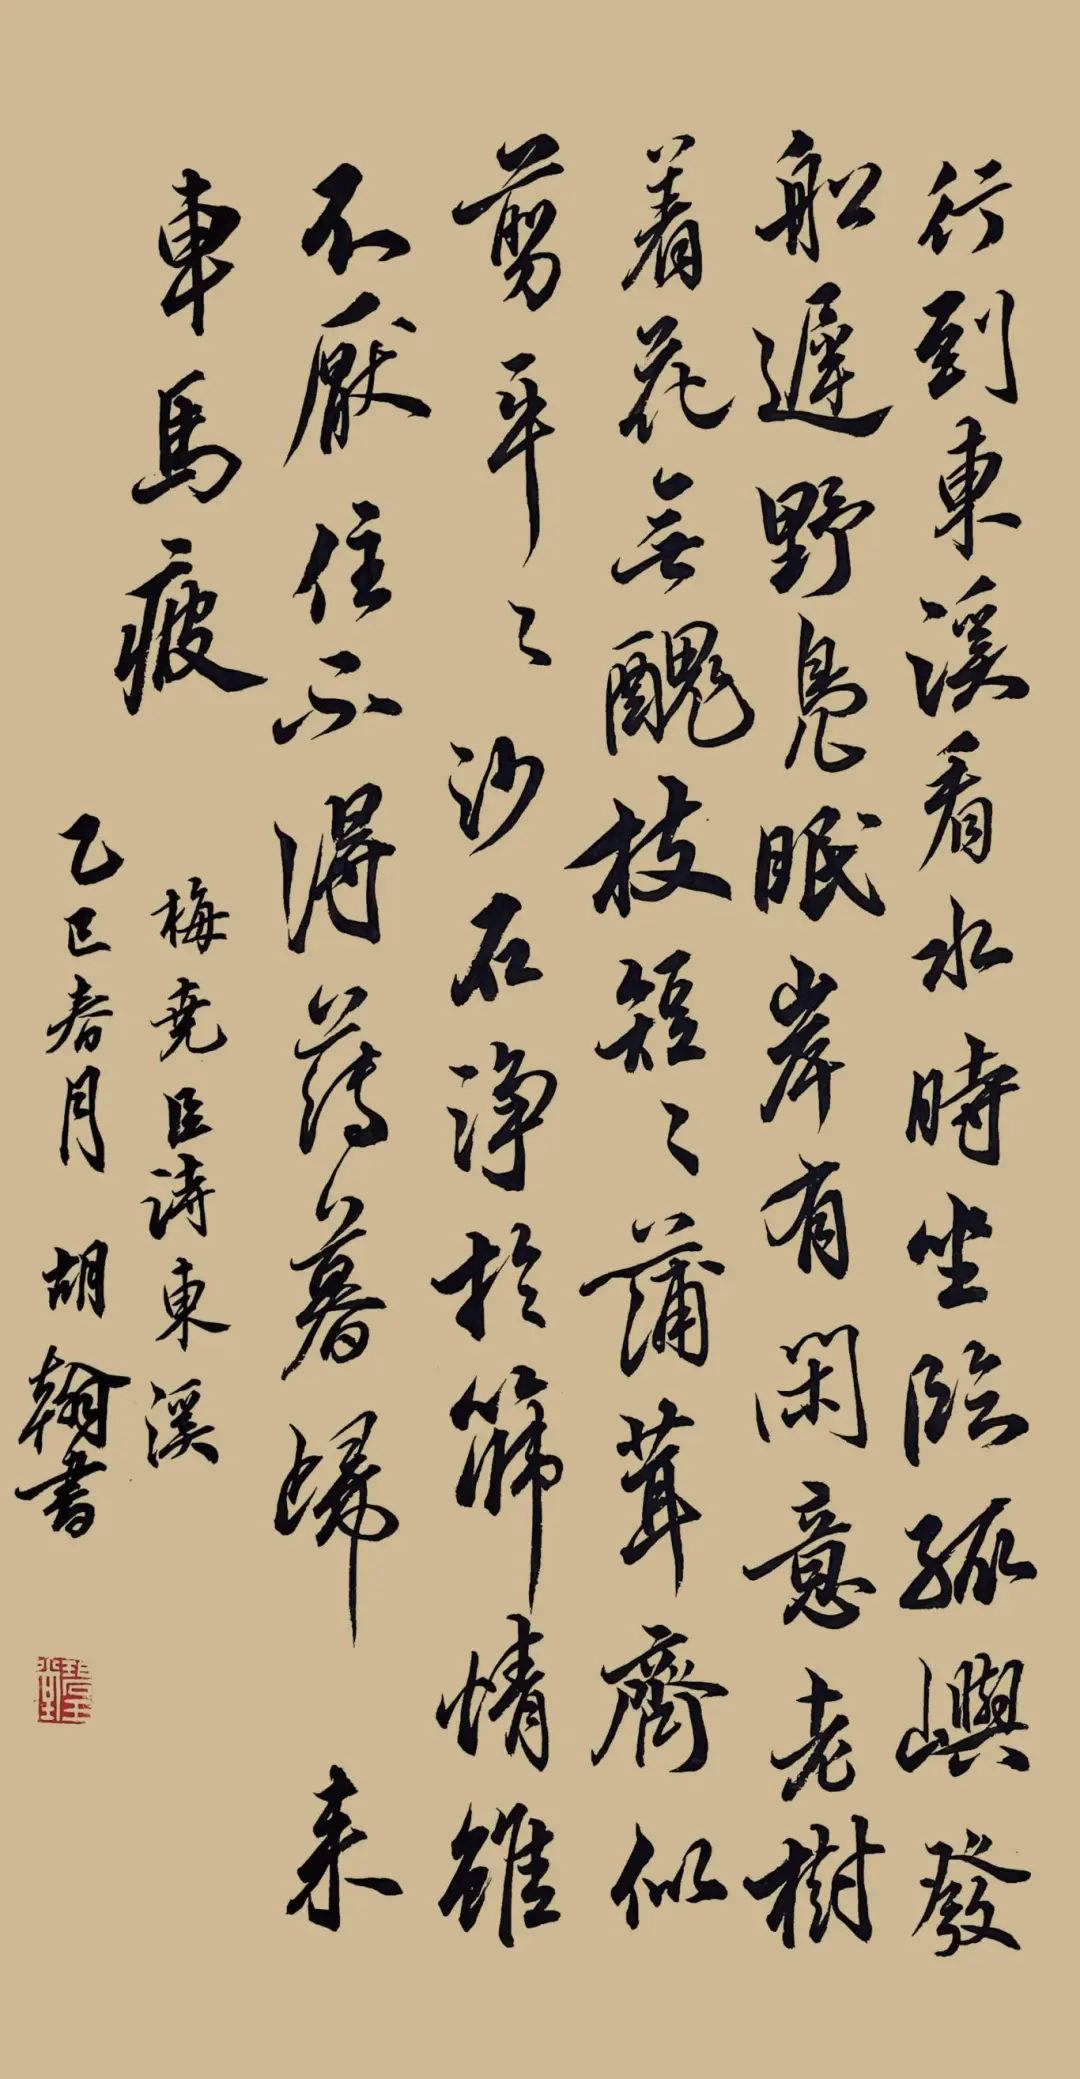 行到東溪看水時坐臨孤嶼發
船遲野鳧眠岸有閑意老樹
着花無醜枝短〻蒲茸齊似
剪平〻沙石淨於篩情雖
不厭住不得薄暮歸来
車馬疲
梅堯臣詩東溪
乙巳春月 胡翰書